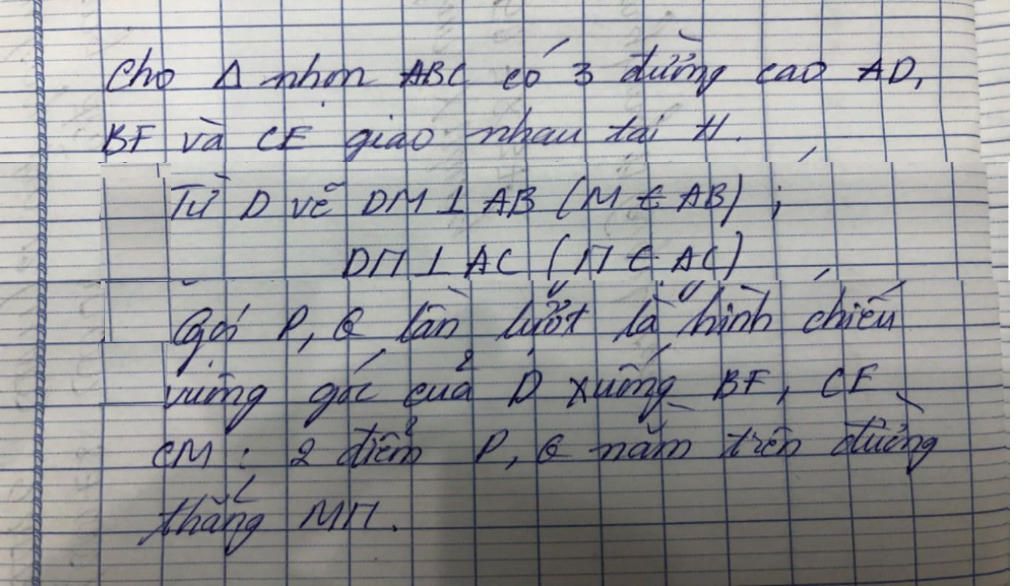 Cho Δ nhọn ABC có 3 đường cao AD,
BF và CE giao nhau tại H.
Từ D vẽ DM ⊥ AB (M ∈ AB) ;
DN ⊥ AC (N ∈ AC)
Gọi P, Q lần lượt là hình chiếu
vuông góc của D xuống BF, CE
CM : 2 điểm P, Q nằm trên đường
thẳng MN.